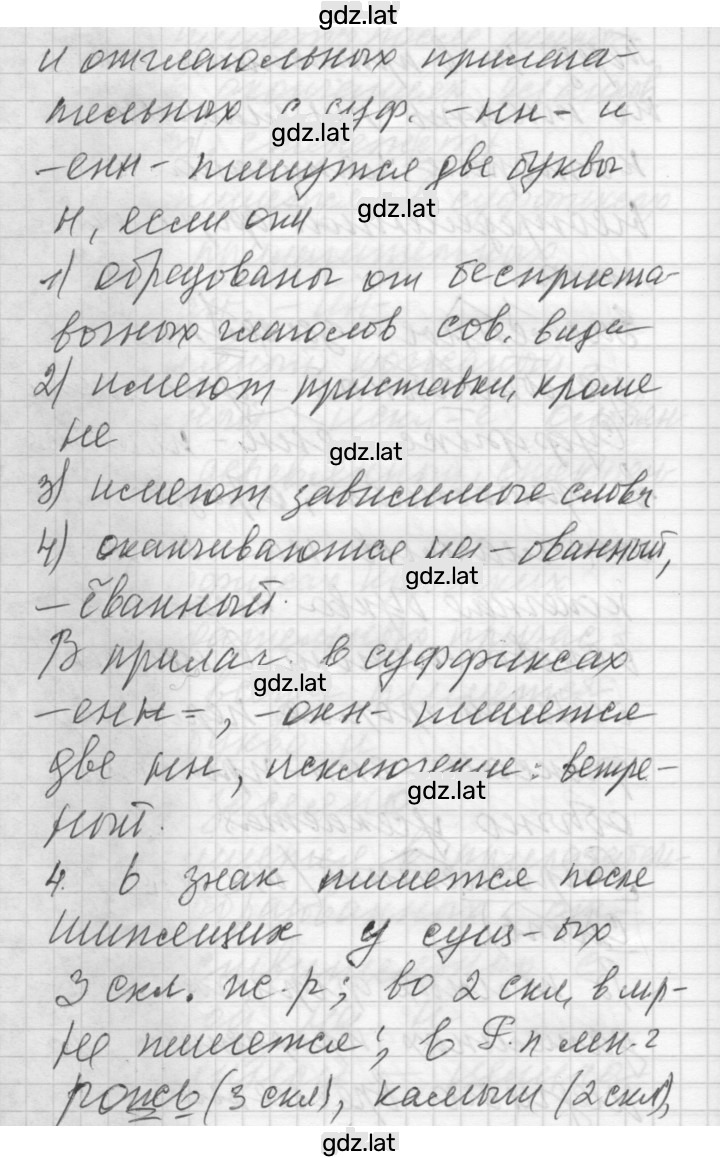 gdz.lat
и отглагольных прилага-
тельных с суф. -нн- и
gdz.lat
-енн- пишутся две буквы
gdz.lat
н, если они
1) образованы от бесприста-
вочных глаголов сов. вида
2) имеют приставки, кроме
не
gdz.lat
3) имеют зависимые слова
4) оканчиваются на -ованный,
gdz.lat
-ёванный.
В прилаг. в суффиксах
gdz.lat
-енн-, -онн- пишется
две нн, исключение: ветре-
gdz.lat
ный.
4. ь знак пишется после
шипящих у сущ-ых
3 скл. ж.р; во 2 скл, в м.р-
не пишется; в Р.п мн.г
рожь (3 скл), камыш (2 скл),
gdz.lat